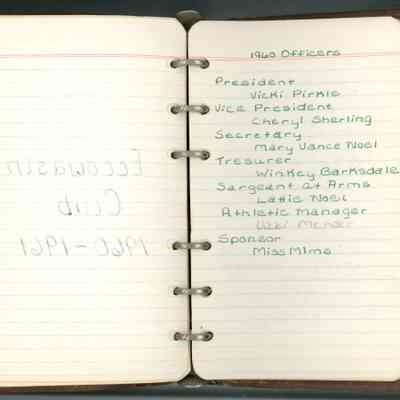 Eccowasin
Club
1960-1961
1960 Officers
President
Vicki Pirkle
Vice President
Cheryl Sherling
Secretary
Mary Vance Noel
Tresurer
Winkey Barksdale
Sargeant at Arms
Latie Noel
Athletic Manager
Sponsor
Miss Mims